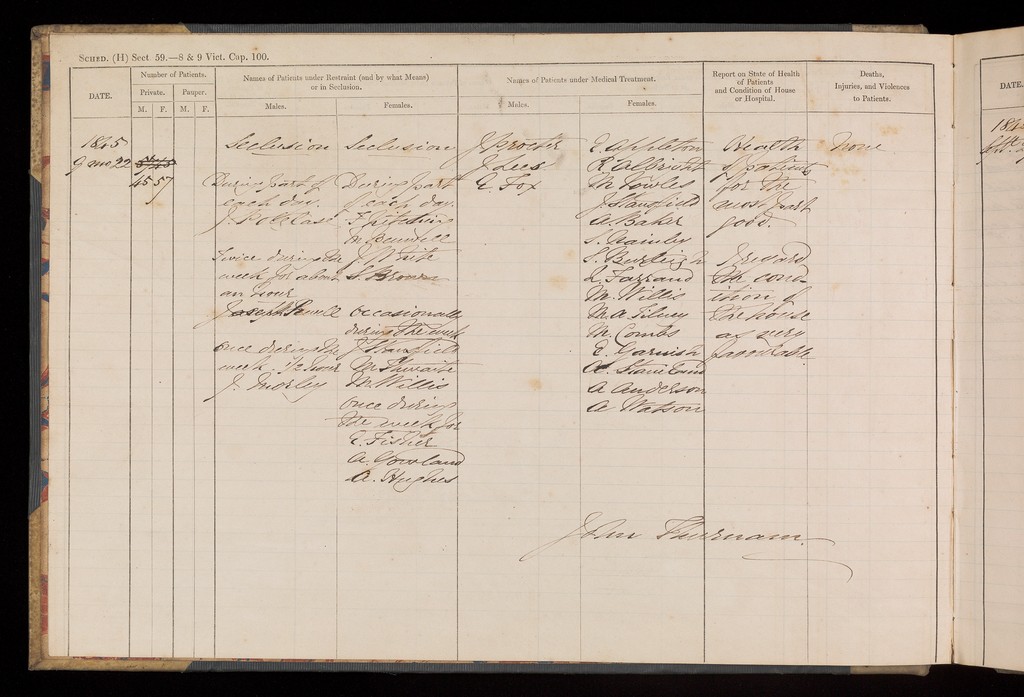 SCHED. (H) Sect 59.—8 & 9 Vict. Cap. 100.
DATE.
Number of Patients.
Private.
Pauper.
M. F. M. F.
Names of Patients under Restraint (and by what Means)
or in Seclusion.
Males.
Females.
Names of Patients under Medical Treatment.
Males.
Females.
Report on State of Health
of Patients
and Condition of House
or Hospital.
Deaths,
Injuries, and Violences
to Patients.
1845
9 mo 22
45 57
Seclusion
During part of
each day.
Twice during the
week for about
an hour
Joseph
once during the
week 1/2 hour
J. Morley
Seclusion
During part
of each day.
J. White
S. Brown
occasionally
during the week
J. Stansfield
M. Thwaite
M. Willis
once during
the week for
E. Fisher
A. Gowland
A. Hughes
J Procter
J Lees
E Fox
E. Appleton
R. Albright
M Fowles
J. Stansfield
A. Baker
S. Burleigh
Farrand
M. Willis
M. A Tilney
M. Combs
E. Garnish
A.
A Anderson
A Watson
Health
of patients
for the
most part
good.
I regard
the cond-
ition of
the house
as very
favourable.
None
John Thurnam
DATE.